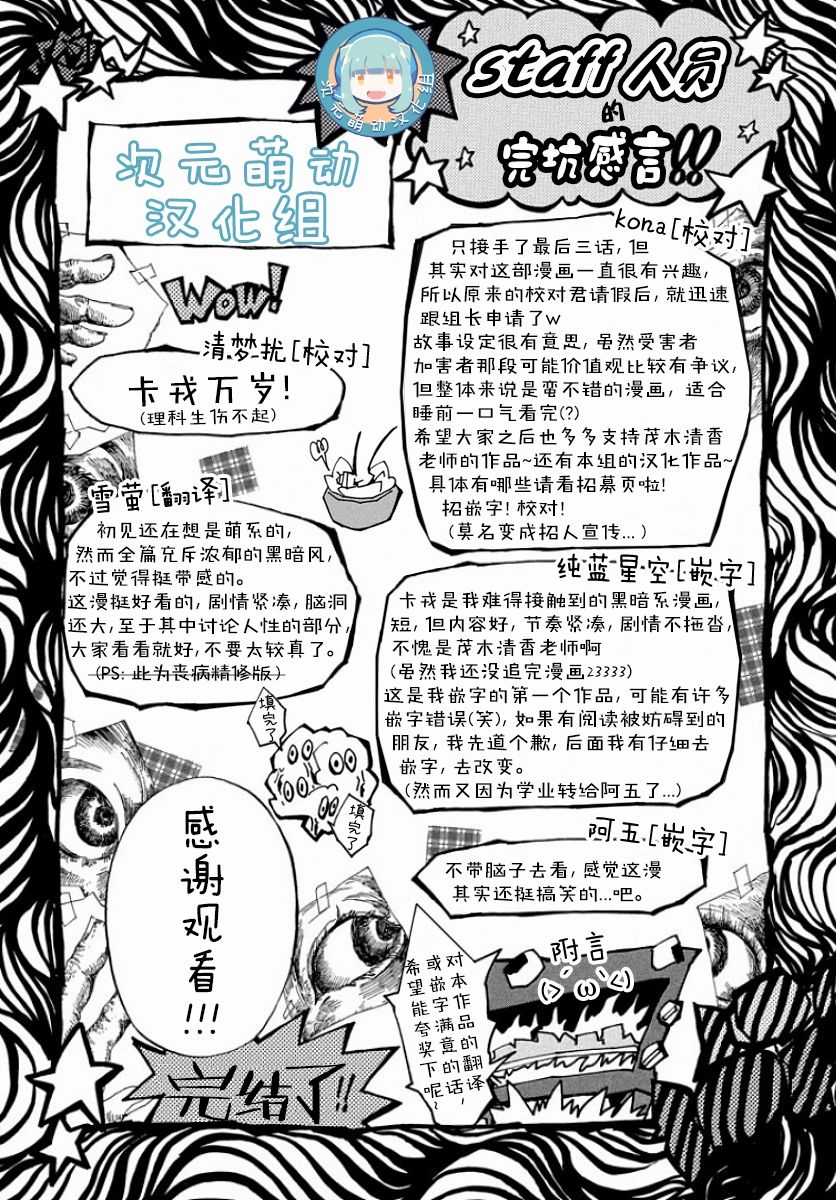 次元萌动汉化组
staff人员
的
完坑感言!!
次元萌动
汉化组
Wow!
kona[校对]
只接手了最后三话, 但
其实对这部漫画一直很有兴趣,
所以原来的校对君请假后, 就迅速
跟组长申请了w
故事设定很有意思, 虽然受害者
加害者那段可能价值观比较有争议,
但整体来说是蛮不错的漫画, 适合
睡前一口气看完(?)
希望大家之后也多多支持茂木清香
老师的作品~还有本组的汉化作品~
具体有哪些请看招募页啦!
招嵌字! 校对!
(莫名变成招人宣传...)
清梦扰[校对]
卡戎万岁!
(理科生伤不起)
雪萤[翻译]
初见还在想是萌系的,
然而全篇充斥浓郁的黑暗风,
不过觉得挺带感的。
这漫挺好看的, 剧情紧凑, 脑洞
还大, 至于其中讨论人性的部分,
大家看看就好, 不要太较真了。
(PS: 此为丧病精修版)
纯蓝星空[嵌字]
卡戎是我难得接触到的黑暗系漫画,
短, 但内容好, 节奏紧凑, 剧情不拖沓,
不愧是茂木清香老师啊
(虽然我还没追完漫画23333)
这是我嵌字的第一个作品, 可能有许多
嵌字错误(笑), 如果有阅读被妨碍到的
朋友, 我先道个歉, 后面我有仔细去
嵌字, 去改变。
(然而又因为学业转给阿五了...)
填完了
填完了
阿五[嵌字]
不带脑子去看, 感觉这漫
其实还挺搞笑的...吧。
附言
(>´ω`<)
对本作品的翻译
或嵌字满意的话,
希望能夸奖下呢~
感谢观看!!!
完结了!!